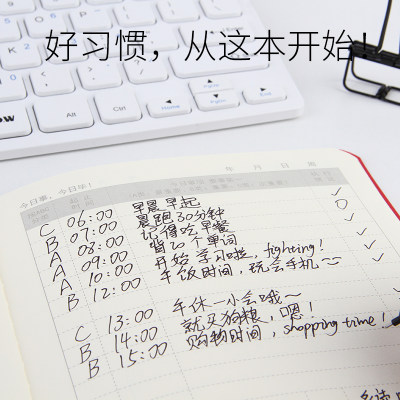 好习惯，从这本开始！
今日事，今日毕！
年 月 日 周
C 06:00 早晨早起
B 07:00 晨跑30分钟
A 08:00 记得吃早餐
A 09:00 背20个单词
A 10:00 开始学习啦，fighting！
B 12:00 午饭时间，玩会手机~
C 13:00 午休一小会哦~
B 14:00 就买狗粮，嗯！
B 15:00 购物时间，shopping time！